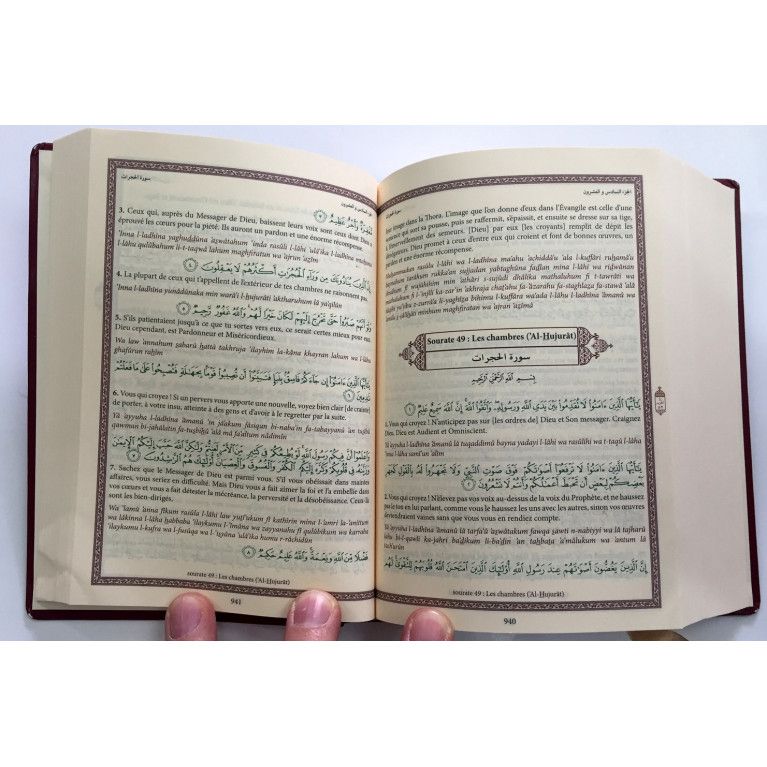 الجزء السادس و العشرون
image dans la Thora. L'image que l'on donne d'eux dans l'Évangile est celle d'une
semence qui sort sa pousse, puis se raffermit, s'épaissit, et ensuite se dresse sur sa tige,
à l'émerveillement des semeurs. [Dieu] par eux [les croyants] remplit de dépit les
mécréants. Dieu promet à ceux d'entre eux qui croient et font de bonnes œuvres, un
pardon et une énorme récompense.
Muḥammadun rasūlu l-lāhi wa l-ladhīna ma'ahu 'achiddā'u 'ala l-kuffāri ruḥamā'u
Sourate 49 : Les chambres ('Al-Ḥujurât)
سورة الحجرات
بِسْمِ اللَّهِ الرَّحْمَٰنِ الرَّحِيمِ
يَٰٓأَيُّهَا ٱلَّذِينَ ءَامَنُوا۟ لَا تُقَدِّمُوا۟ بَيْنَ يَدَىِ ٱللَّهِ وَرَسُولِهِۦ وَٱتَّقُوا۟ ٱللَّهَ إِنَّ ٱللَّهَ سَمِيعٌ عَلِيمٌ ١
Vous qui croyez ! N'anticipez pas sur [les ordres de] Dieu et Son messager. Craignez
Dieu. Dieu est Audient et Omniscient.
Yā 'ayyuha l-ladhīna 'āmanū lā tuqaddimū bayna yadayi l-lāhi wa rasūlihi wa t-taqū l-lāha
'inna l-lāha samī'un 'alīm
يَٰٓأَيُّهَا ٱلَّذِينَ ءَامَنُوا۟ لَا تَرْفَعُوٓا۟ أَصْوَٰتَكُمْ فَوْقَ صَوْتِ ٱلنَّبِىِّ وَلَا تَجْهَرُوا۟ لَهُۥ بِٱلْقَوْلِ كَجَهْرِ
بَعْضِكُمْ لِبَعْضٍ أَن تَحْبَطَ أَعْمَٰلُكُمْ وَأَنتُمْ لَا تَشْعُرُونَ ٢
2. Vous qui croyez ! N'élevez pas vos voix au-dessus de la voix du Prophète, et ne haussez
pas le ton en lui parlant, comme vous le haussez les uns avec les autres, sinon vos œuvres
deviendraient vaines sans que vous vous en rendiez compte.
Yā 'ayyuha l-ladhīna 'āmanū lā tarfa'ū 'aṣwātakum fawqa ṣawti n-nabiyyi wa lā tajharū
lahu bi l-qawli ka-jahri ba'ḍikum li-ba'ḍin 'an taḥbaṭa 'a'mālukum wa 'antum lā
tach'urūn
إِنَّ ٱلَّذِينَ يَغُضُّونَ أَصْوَٰتَهُمْ عِندَ رَسُولِ ٱللَّهِ أُو۟لَٰٓئِكَ ٱلَّذِينَ ٱمْتَحَنَ ٱللَّهُ قُلُوبَهُمْ لِلتَّقْوَىٰ لَهُم
sourate 49 : Les chambres ('Al-Ḥujurât)
940
سورة الحجرات
الجزء السادس و العشرون
مَّغْفِرَةٌ وَأَجْرٌ عَظِيمٌ ٣
3. Ceux qui, auprès du Messager de Dieu, baissent leurs voix sont ceux dont Dieu a
éprouvé les cœurs pour la piété. Ils auront un pardon et une énorme récompense.
'Inna l-ladhīna yaghuḍḍūna 'aṣwātahum 'inda rasūli l-lāhi 'ulā'ika l-ladhīna mtaḥana
l-lāhu qulūbahum li t-taqwā lahum maghfiratun wa 'ajrun 'aẓīm
إِنَّ ٱلَّذِينَ يُنَادُونَكَ مِن وَرَآءِ ٱلْحُجُرَٰتِ أَكْثَرُهُمْ لَا يَعْقِلُونَ ٤
4. La plupart de ceux qui t'appellent de l'extérieur de tes chambres ne raisonnent pas.
'Inna l-ladhīna yunādūnaka min warā'i l-ḥujurāti 'aktharuhum lā ya'qilūn
وَلَوْ أَنَّهُمْ صَبَرُوا۟ حَتَّىٰ تَخْرُجَ إِلَيْهِمْ لَكَانَ خَيْرًا لَّهُمْ وَٱللَّهُ غَفُورٌ رَّحِيمٌ ٥
5. S'ils patientaient jusqu'à ce que tu sortes vers eux, ce serait certes mieux pour eux.
Dieu cependant, est Pardonneur et Miséricordieux.
Wa law 'annahum ṣabarū ḥattā takhruja 'ilayhim la-kāna khayran lahum wa l-lāhu
ghafūrun raḥīm
يَٰٓأَيُّهَا ٱلَّذِينَ ءَامَنُوٓا۟ إِن جَآءَكُمْ فَاسِقٌۢ بِنَبَإٍ فَتَبَيَّنُوٓا۟ أَن تُصِيبُوا۟ قَوْمًۢا بِجَهَٰلَةٍ فَتُصْبِحُوا۟ عَلَىٰ مَا فَعَلْتُمْ
نَٰدِمِينَ ٦
6. Vous qui croyez ! Si un pervers vous apporte une nouvelle, voyez bien clair [de crainte]
de porter, à votre insu, atteinte à des gens et d'avoir à le regretter par la suite.
Yā 'ayyuha l-ladhīna 'āmanū 'in jā'akum fāsiqun bi-naba'in fa-tabayyanū 'an tuṣībū
qawman bi-jahālatin fa-tuṣbiḥū 'alā mā fa'altum nādimīn
وَٱعْلَمُوٓا۟ أَنَّ فِيكُمْ رَسُولَ ٱللَّهِ لَوْ يُطِيعُكُمْ فِى كَثِيرٍ مِّنَ ٱلْأَمْرِ لَعَنِتُّمْ وَلَٰكِنَّ ٱللَّهَ حَبَّبَ إِلَيْكُمُ ٱلْإِيمَٰنَ
وَزَيَّنَهُۥ فِى قُلُوبِكُمْ وَكَرَّهَ إِلَيْكُمُ ٱلْكُفْرَ وَٱلْفُسُوقَ وَٱلْعِصْيَانَ أُو۟لَٰٓئِكَ هُمُ ٱلرَّٰشِدُونَ ٧
7. Sachez que le Messager de Dieu est parmi vous. S'il vous obéissait dans maintes
affaires, vous seriez en difficulté. Mais Dieu vous a fait aimer la foi et l'a embellie dans
vos cœurs et vous a fait détester la mécréance, la perversité et la désobéissance. Ceux-là
sont les bien-dirigés,
Wa 'lamū 'anna fīkum rasūla l-lāhi law yuṭī'ukum fī kathīrin mina l-'amri la-'anittum
wa lākinna l-lāha ḥabbaba 'ilaykumu l-'īmāna wa zayyanahu fī qulūbikum wa karraha
'ilaykumu l-kufra wa l-fusūqa wa l-'iṣyāna 'ulā'ika humu r-rāchidūn
فَضْلًا مِّنَ ٱللَّهِ وَنِعْمَةً وَٱللَّهُ عَلِيمٌ حَكِيمٌ ٨
sourate 49 : Les chambres ('Al-Ḥujurât)
941